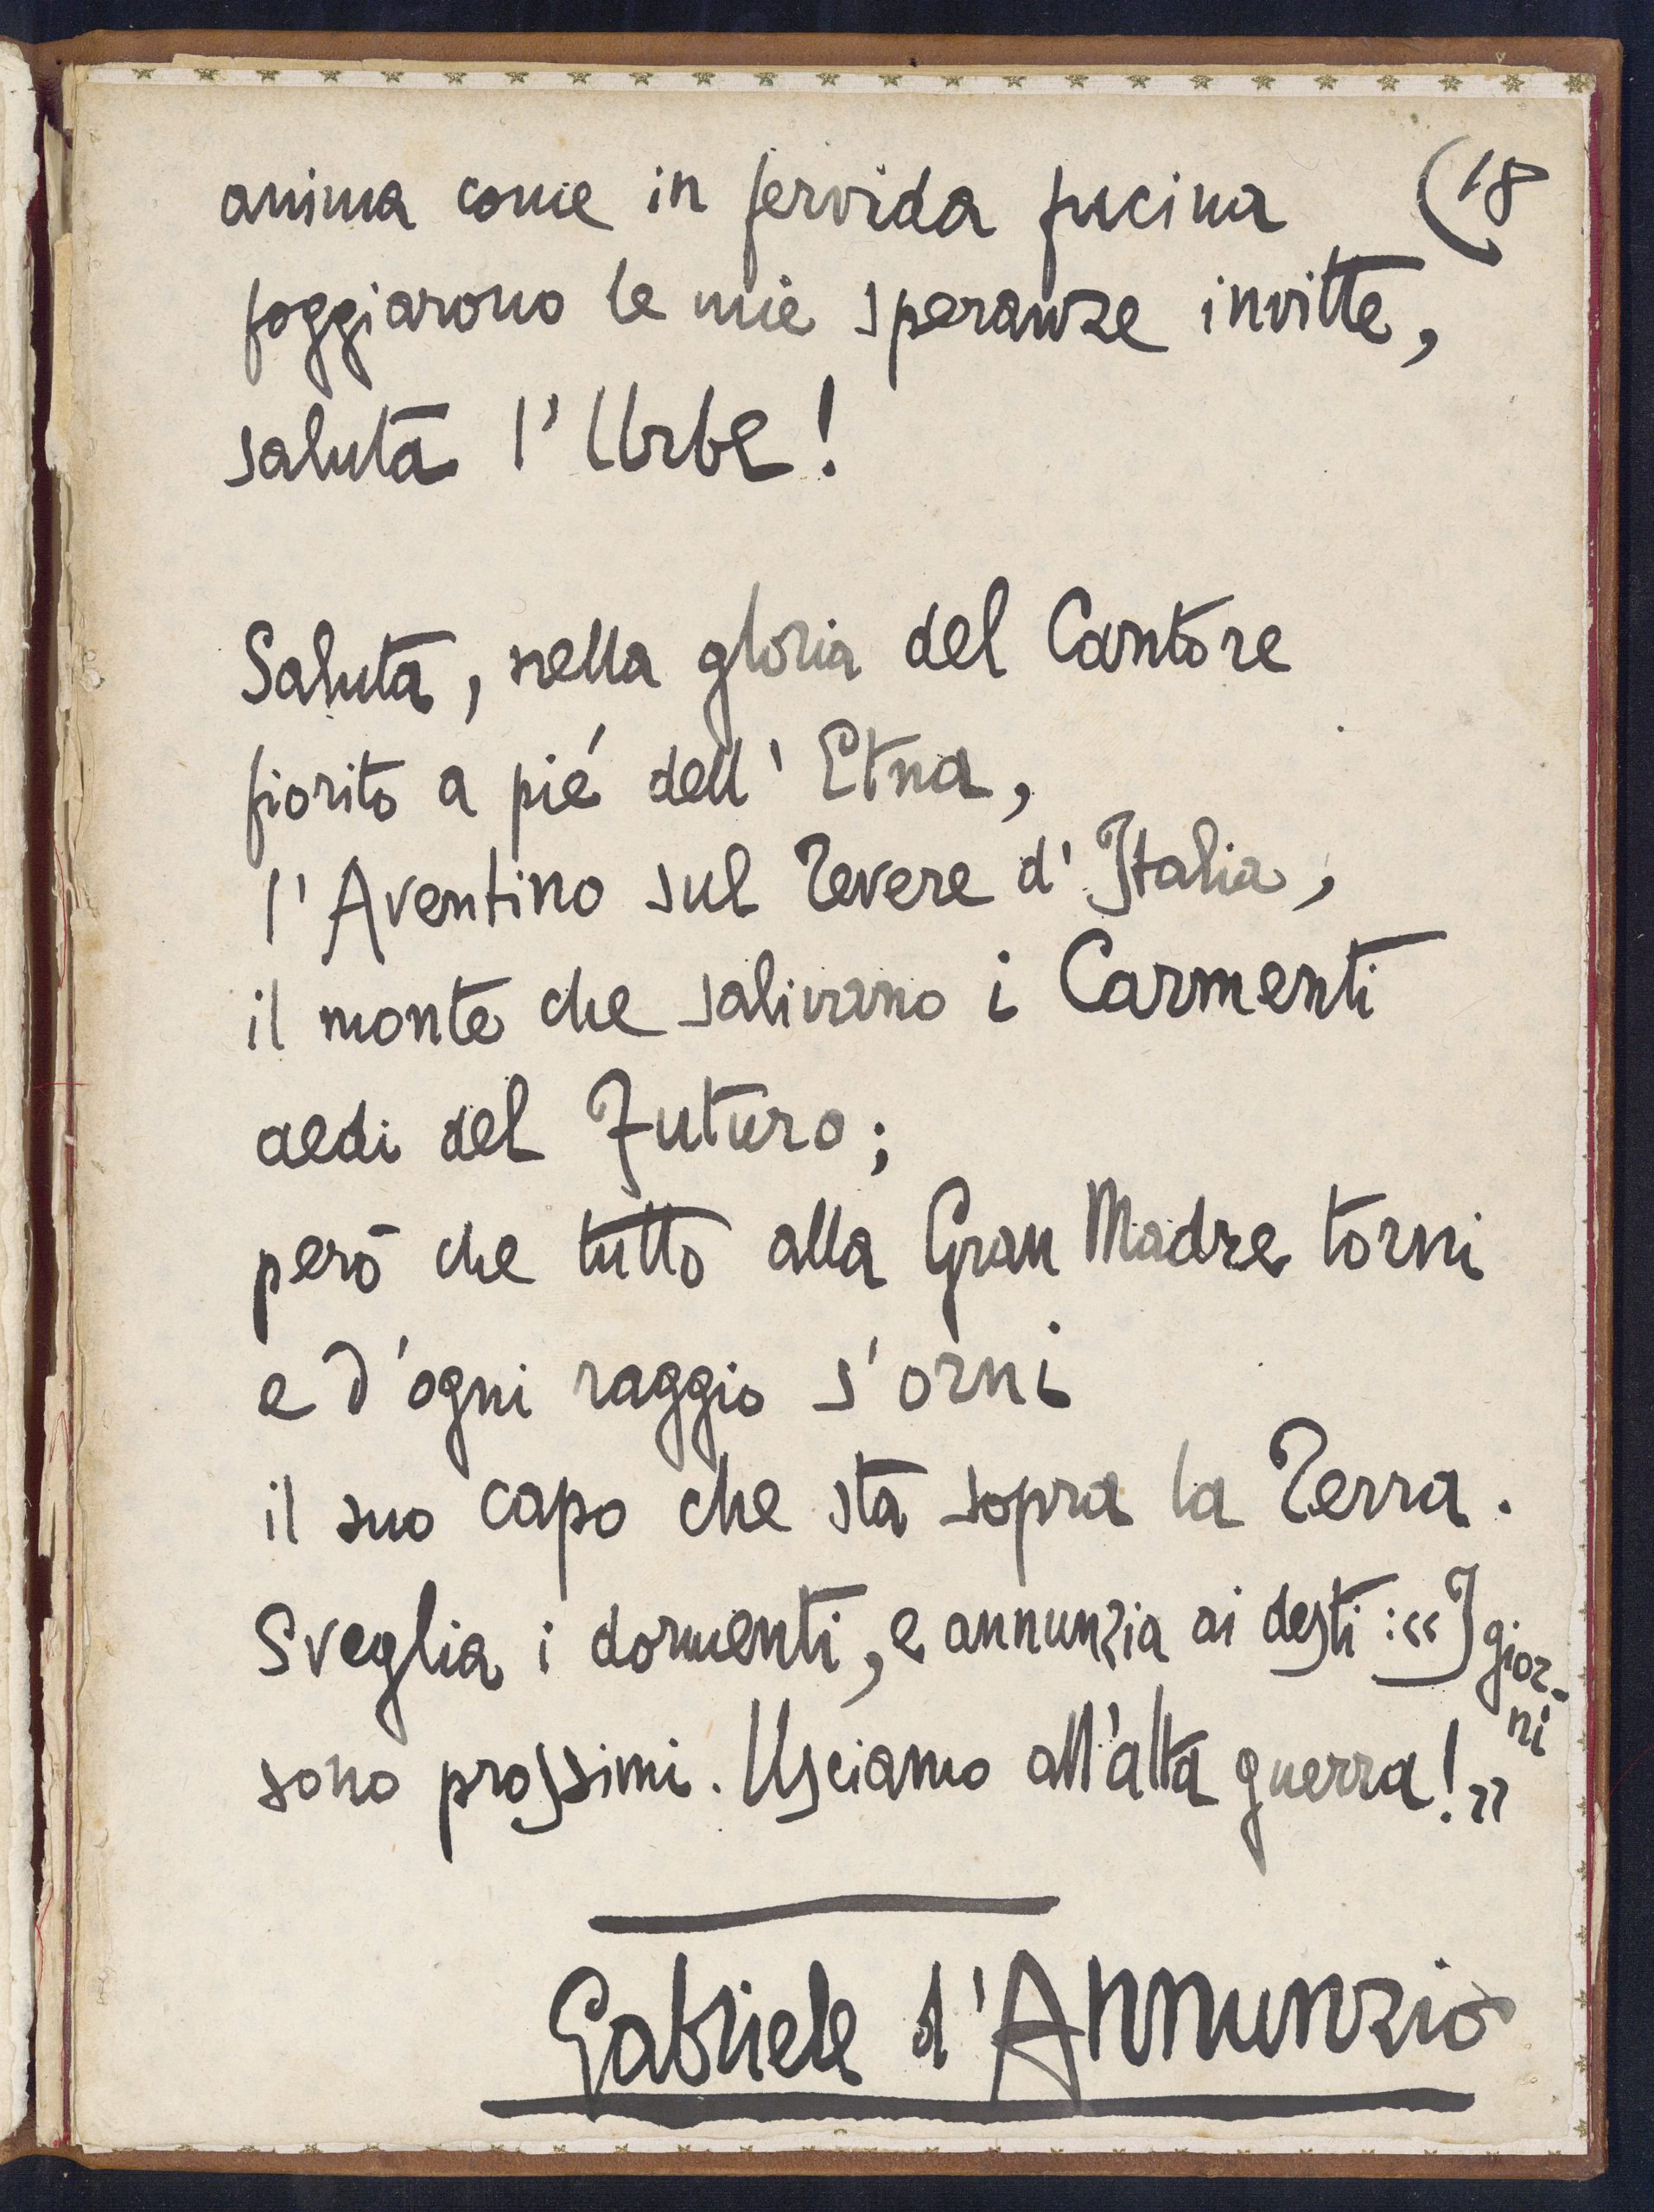 (18
anima come in fervida fucina
foggiarono le mie speranze invitte,
saluta l'Urbe!
Saluta, nella gloria del Cantore
fiorito a pié dell'Etna,
l'Aventino sul Tevere d'Italia,
il monte che salivano i Carmenti
aedi del Futuro;
però che tutto alla Gran Madre torni
e d'ogni raggio s'orni
il suo capo che sta sopra la Terra.
Sveglia i dormenti, e annunzia ai desti: «I gior-
ni
sono prossimi. Usciamo all'alta guerra!»
Gabriele d'Annunzio